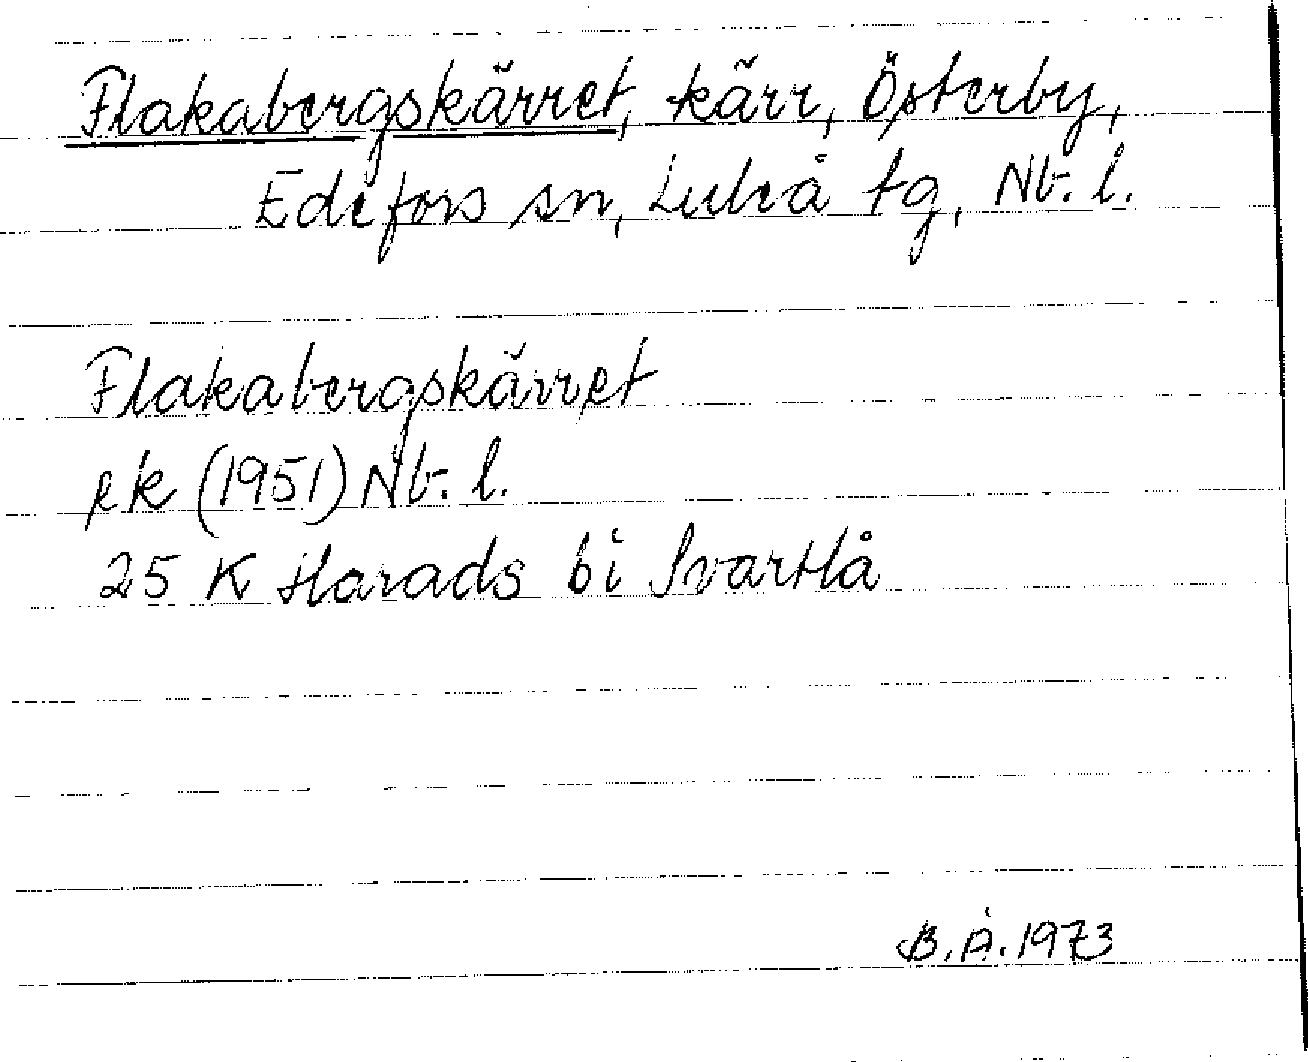 Flakabergskärret, kärr, Österby,
Edefors sn, Luleå tg, Nb. l.
Flakabergskärret
ek (1951) Nb. l.
25 K Harads bi Svartlå
B. Å. 1973